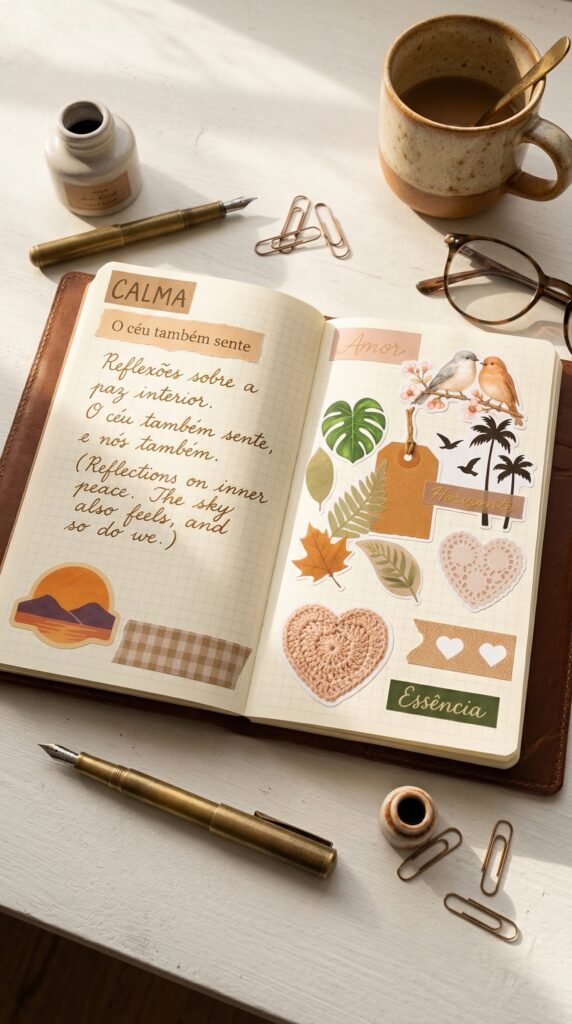 CALMA
O céu também sente
Reflexões sobre a
paz interior.
O céu também sente,
e nós também.
(Reflections on inner
peace. The sky
also feels, and
so do we.)
Amor
Horizonte
Essência